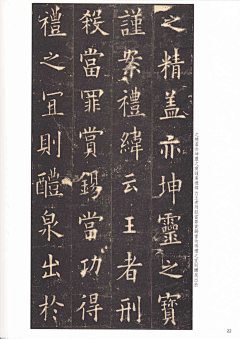 之精盖亦坤靈之寶
謹案禮緯云王者刑
殺當罪賞錫當功得
禮之冝則醴泉出於
22